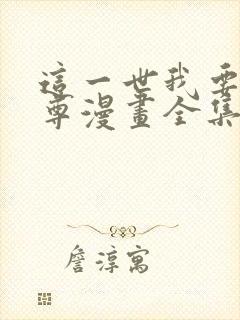 這一世我要
尊漫畫全集
詹淳寓